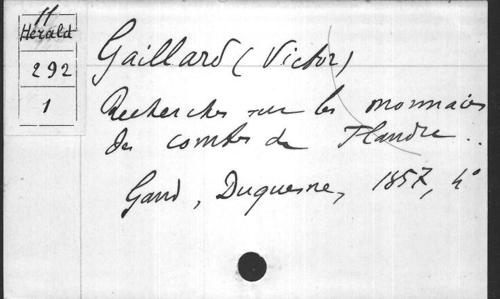 H
Hérald
292
1
Gaillard (Victor)
Recherches sur les monnaies
des comtes de Flandre..
Gand, Duquesne, 1857, 4°